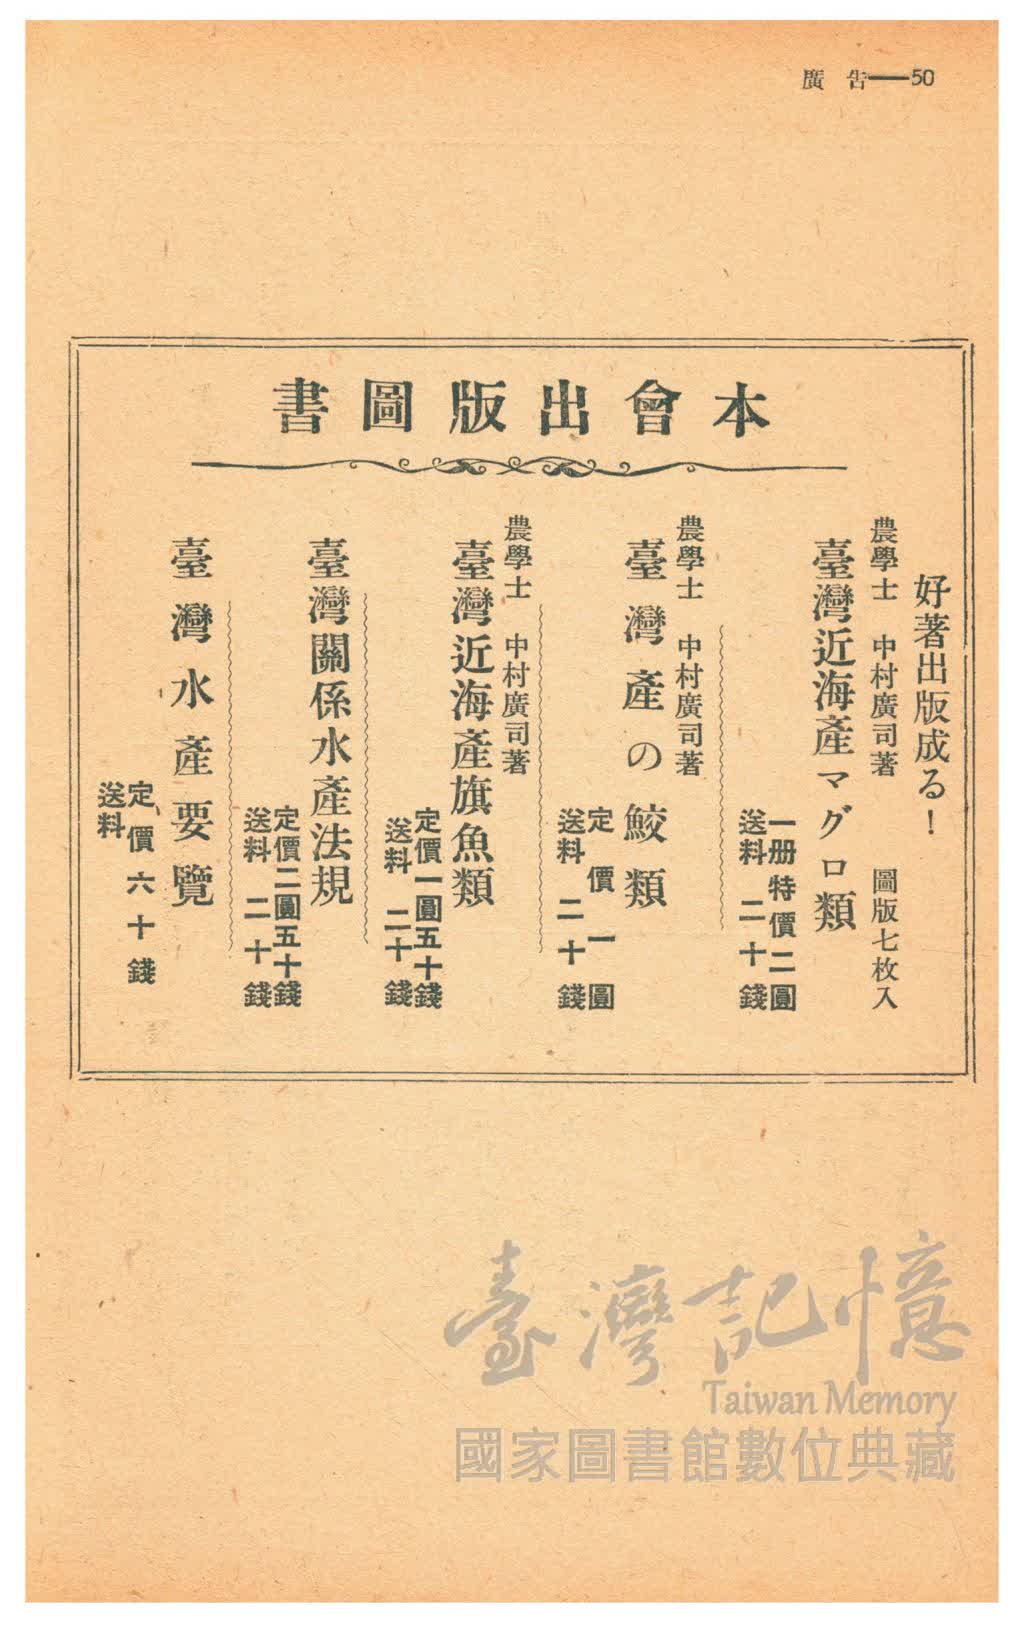 廣告——50
本會出版圖書
好著出版成る！
農學士 中村廣司著 圖版七枚入
臺灣近海產マグロ類
一册特價二圓
送料二十錢
農學士 中村廣司著
臺灣產の鮫類
定價一圓
送料二十錢
農學士 中村廣司著
臺灣近海產旗魚類
定價一圓五十錢
送料二十錢
臺灣關係水產法規
定價二圓五十錢
送料二十錢
臺灣水產要覽
定價六十錢
送料
臺灣記憶
Taiwan Memory
國家圖書館數位典藏